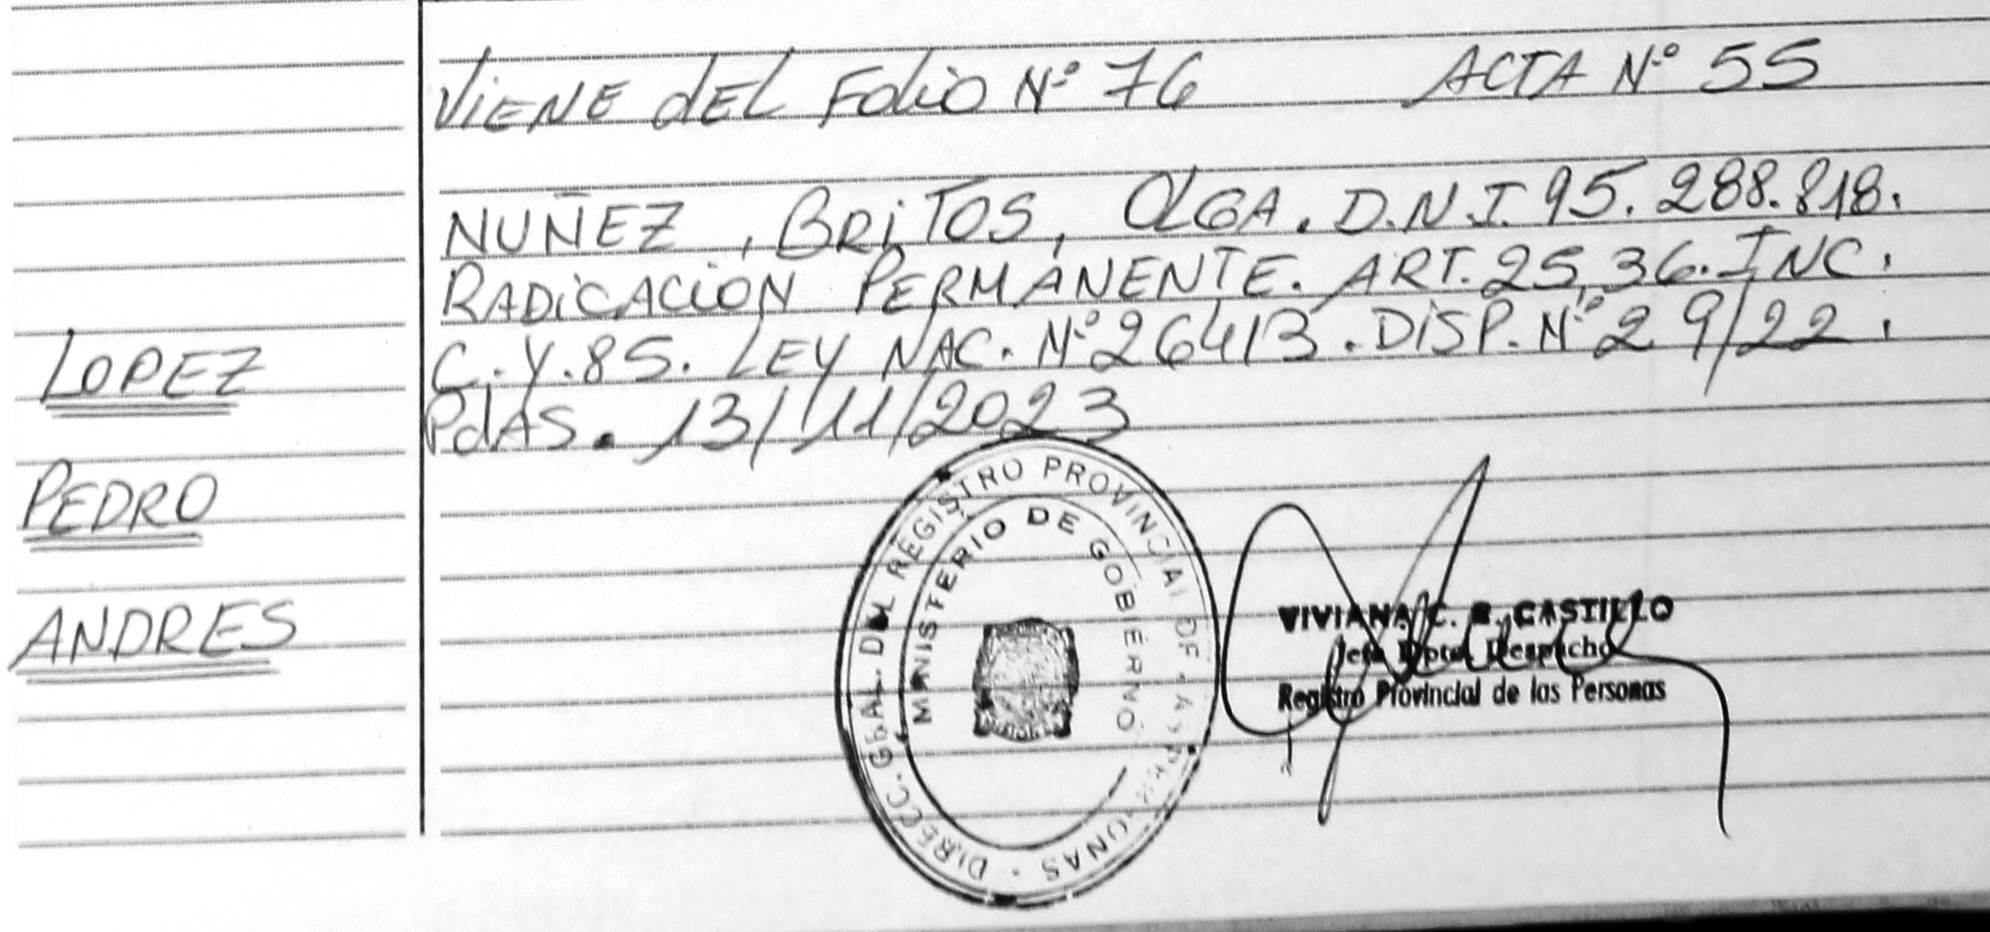 ViENE dEL Folio Nº 76 ACTA Nº 55
NUÑEZ, BRiTOS, OLGA. D.N.I. 95.288.818.
RADiCACiON PERMANENTE. ART. 25, 36. INC.
C. Y. 85. LEY NAC. Nº 26413. DiSP. Nº 29/22.
PdAS. 13/11/2023
LOPEZ
PEDRO
ANDRES
DIRECC. GRAL. DEL REGISTRO PROVINCIAL DE LAS PERSONAS
MINISTERIO DE GOBIERNO
VIVIANA C. R. CASTILLO
Jefa Dpto. Despacho
Registro Provincial de las Personas